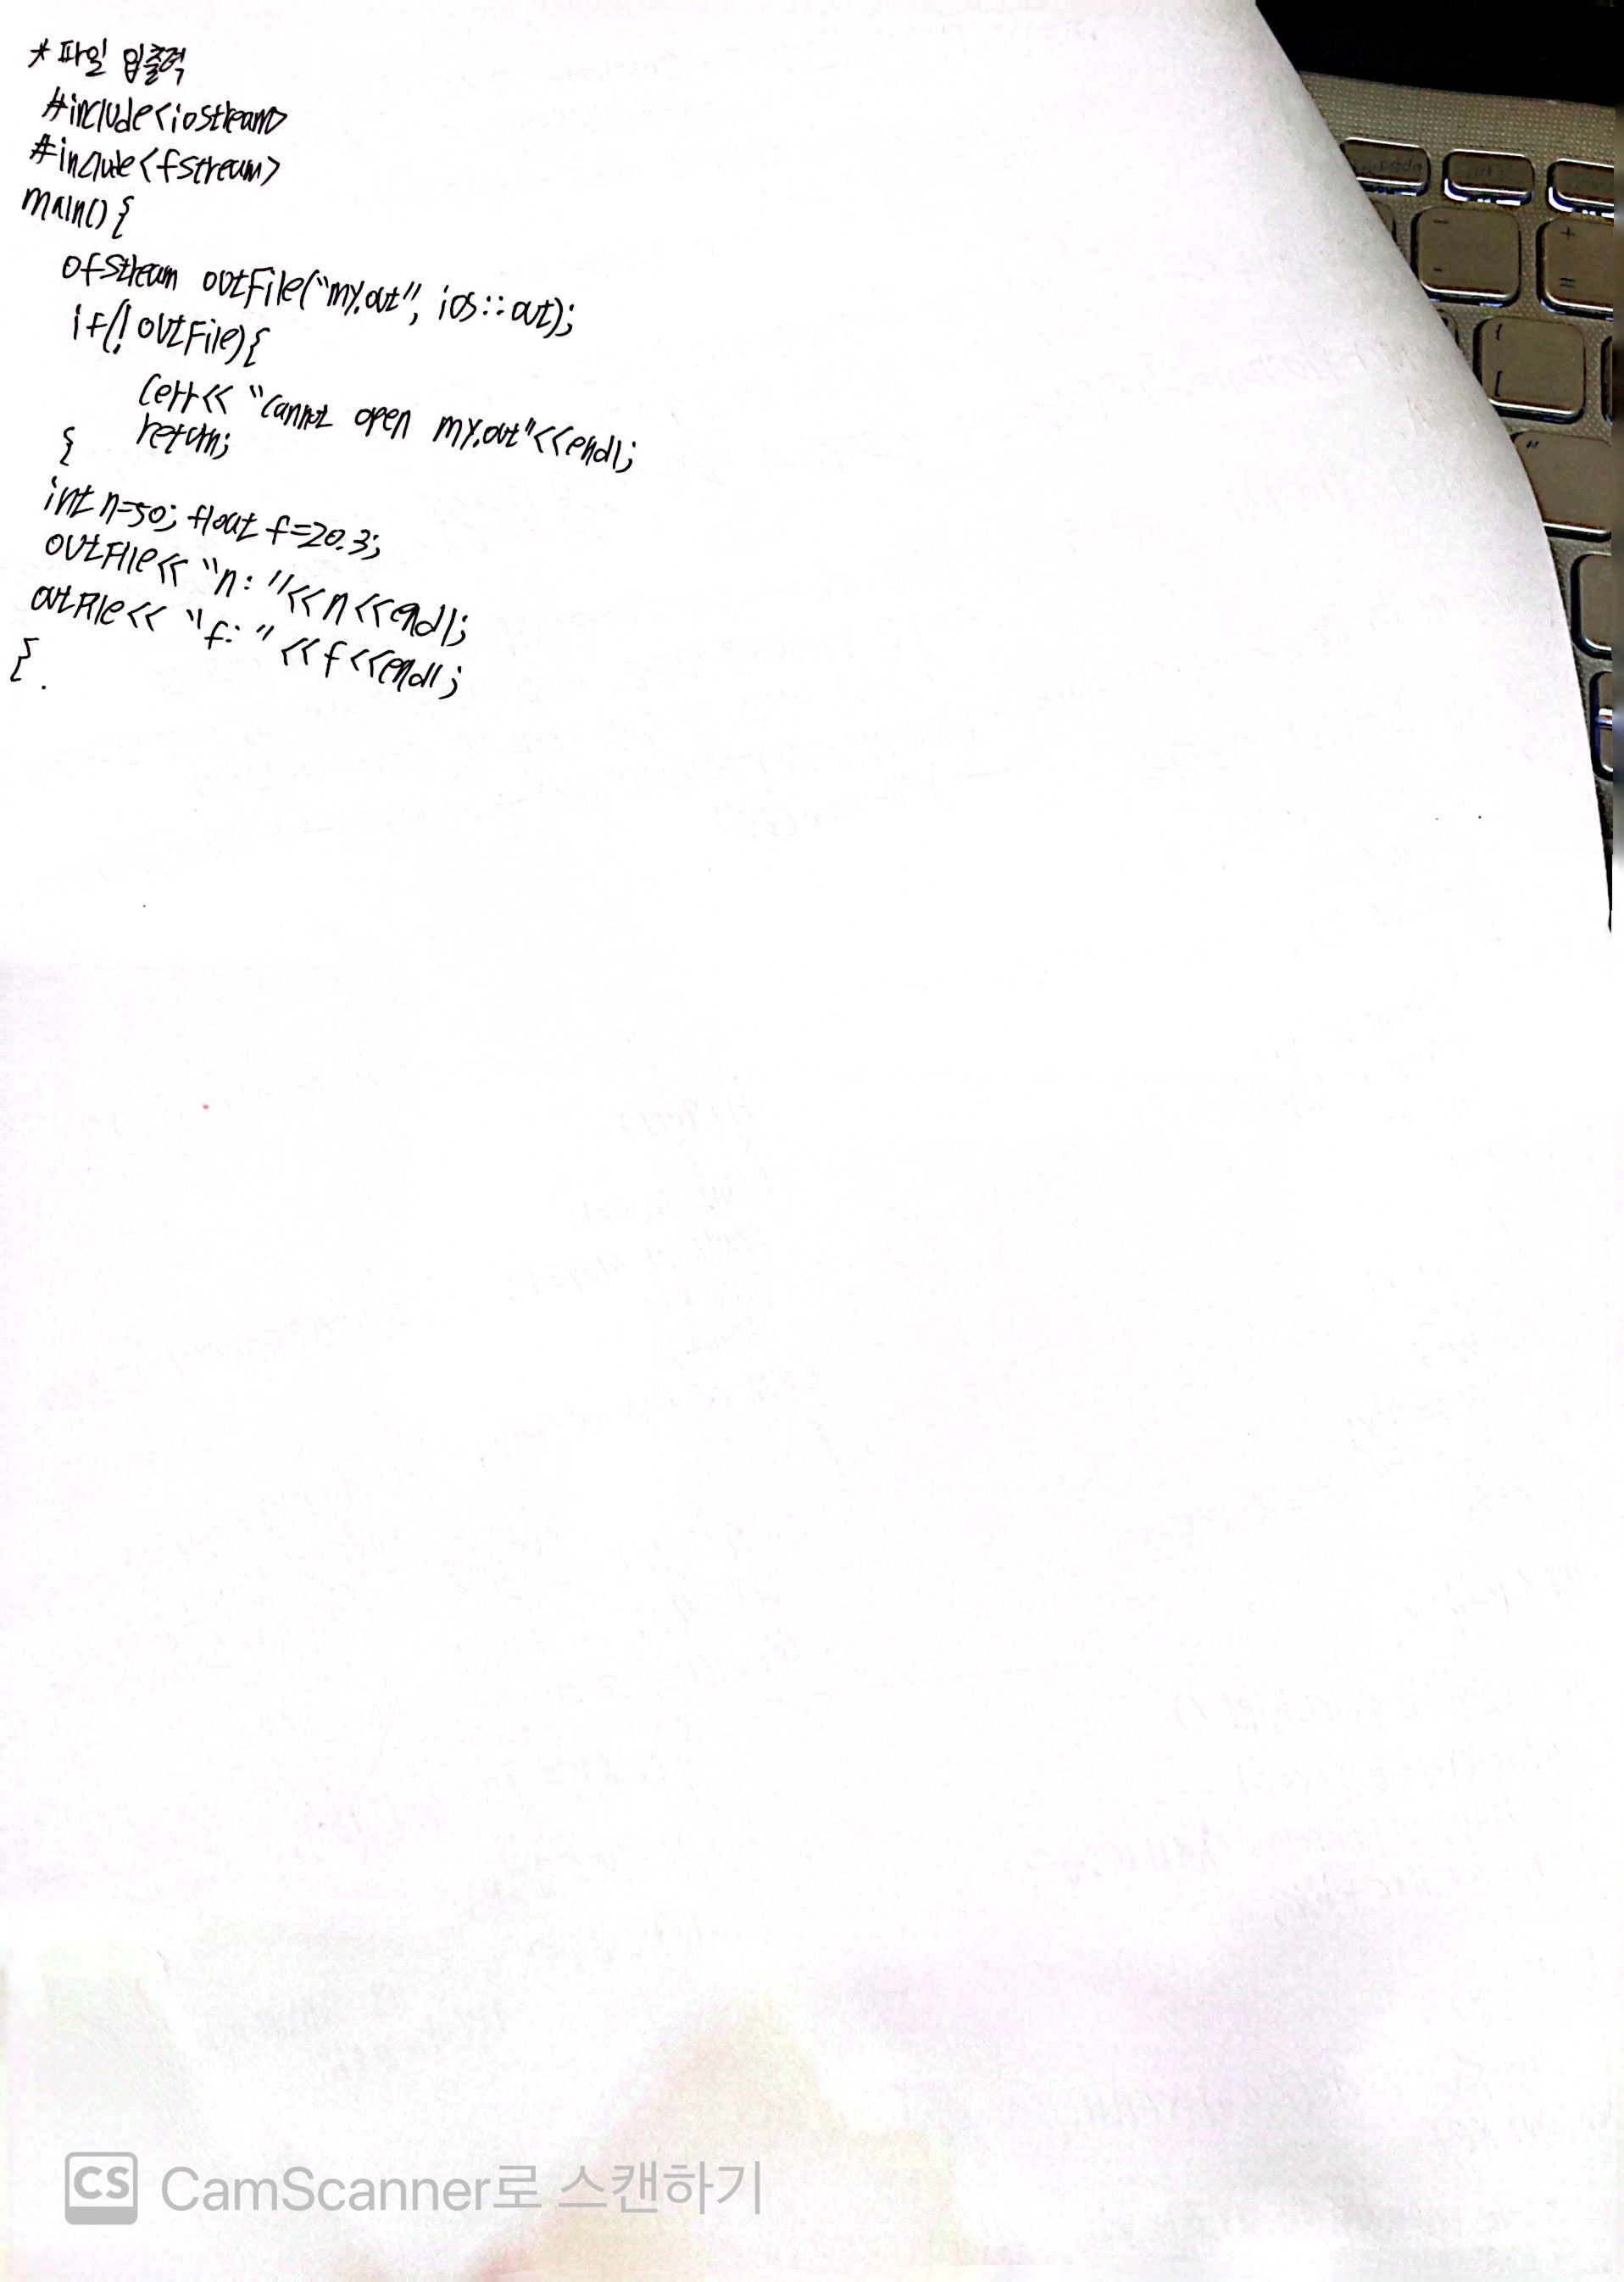 * 파일 입출력
#include<iostream>
#include<fstream>
main(){
ofstream outFile("my.out", ios::out);
if(! outFile){
cerr<< "cannot open my.out"<<endl;
{ return;
int n=50; float f=20.3;
outFile<< "n: "<<n<<endl;
outFile<< "f: " <<f<<endl;
{
CS CamScanner로 스캔하기